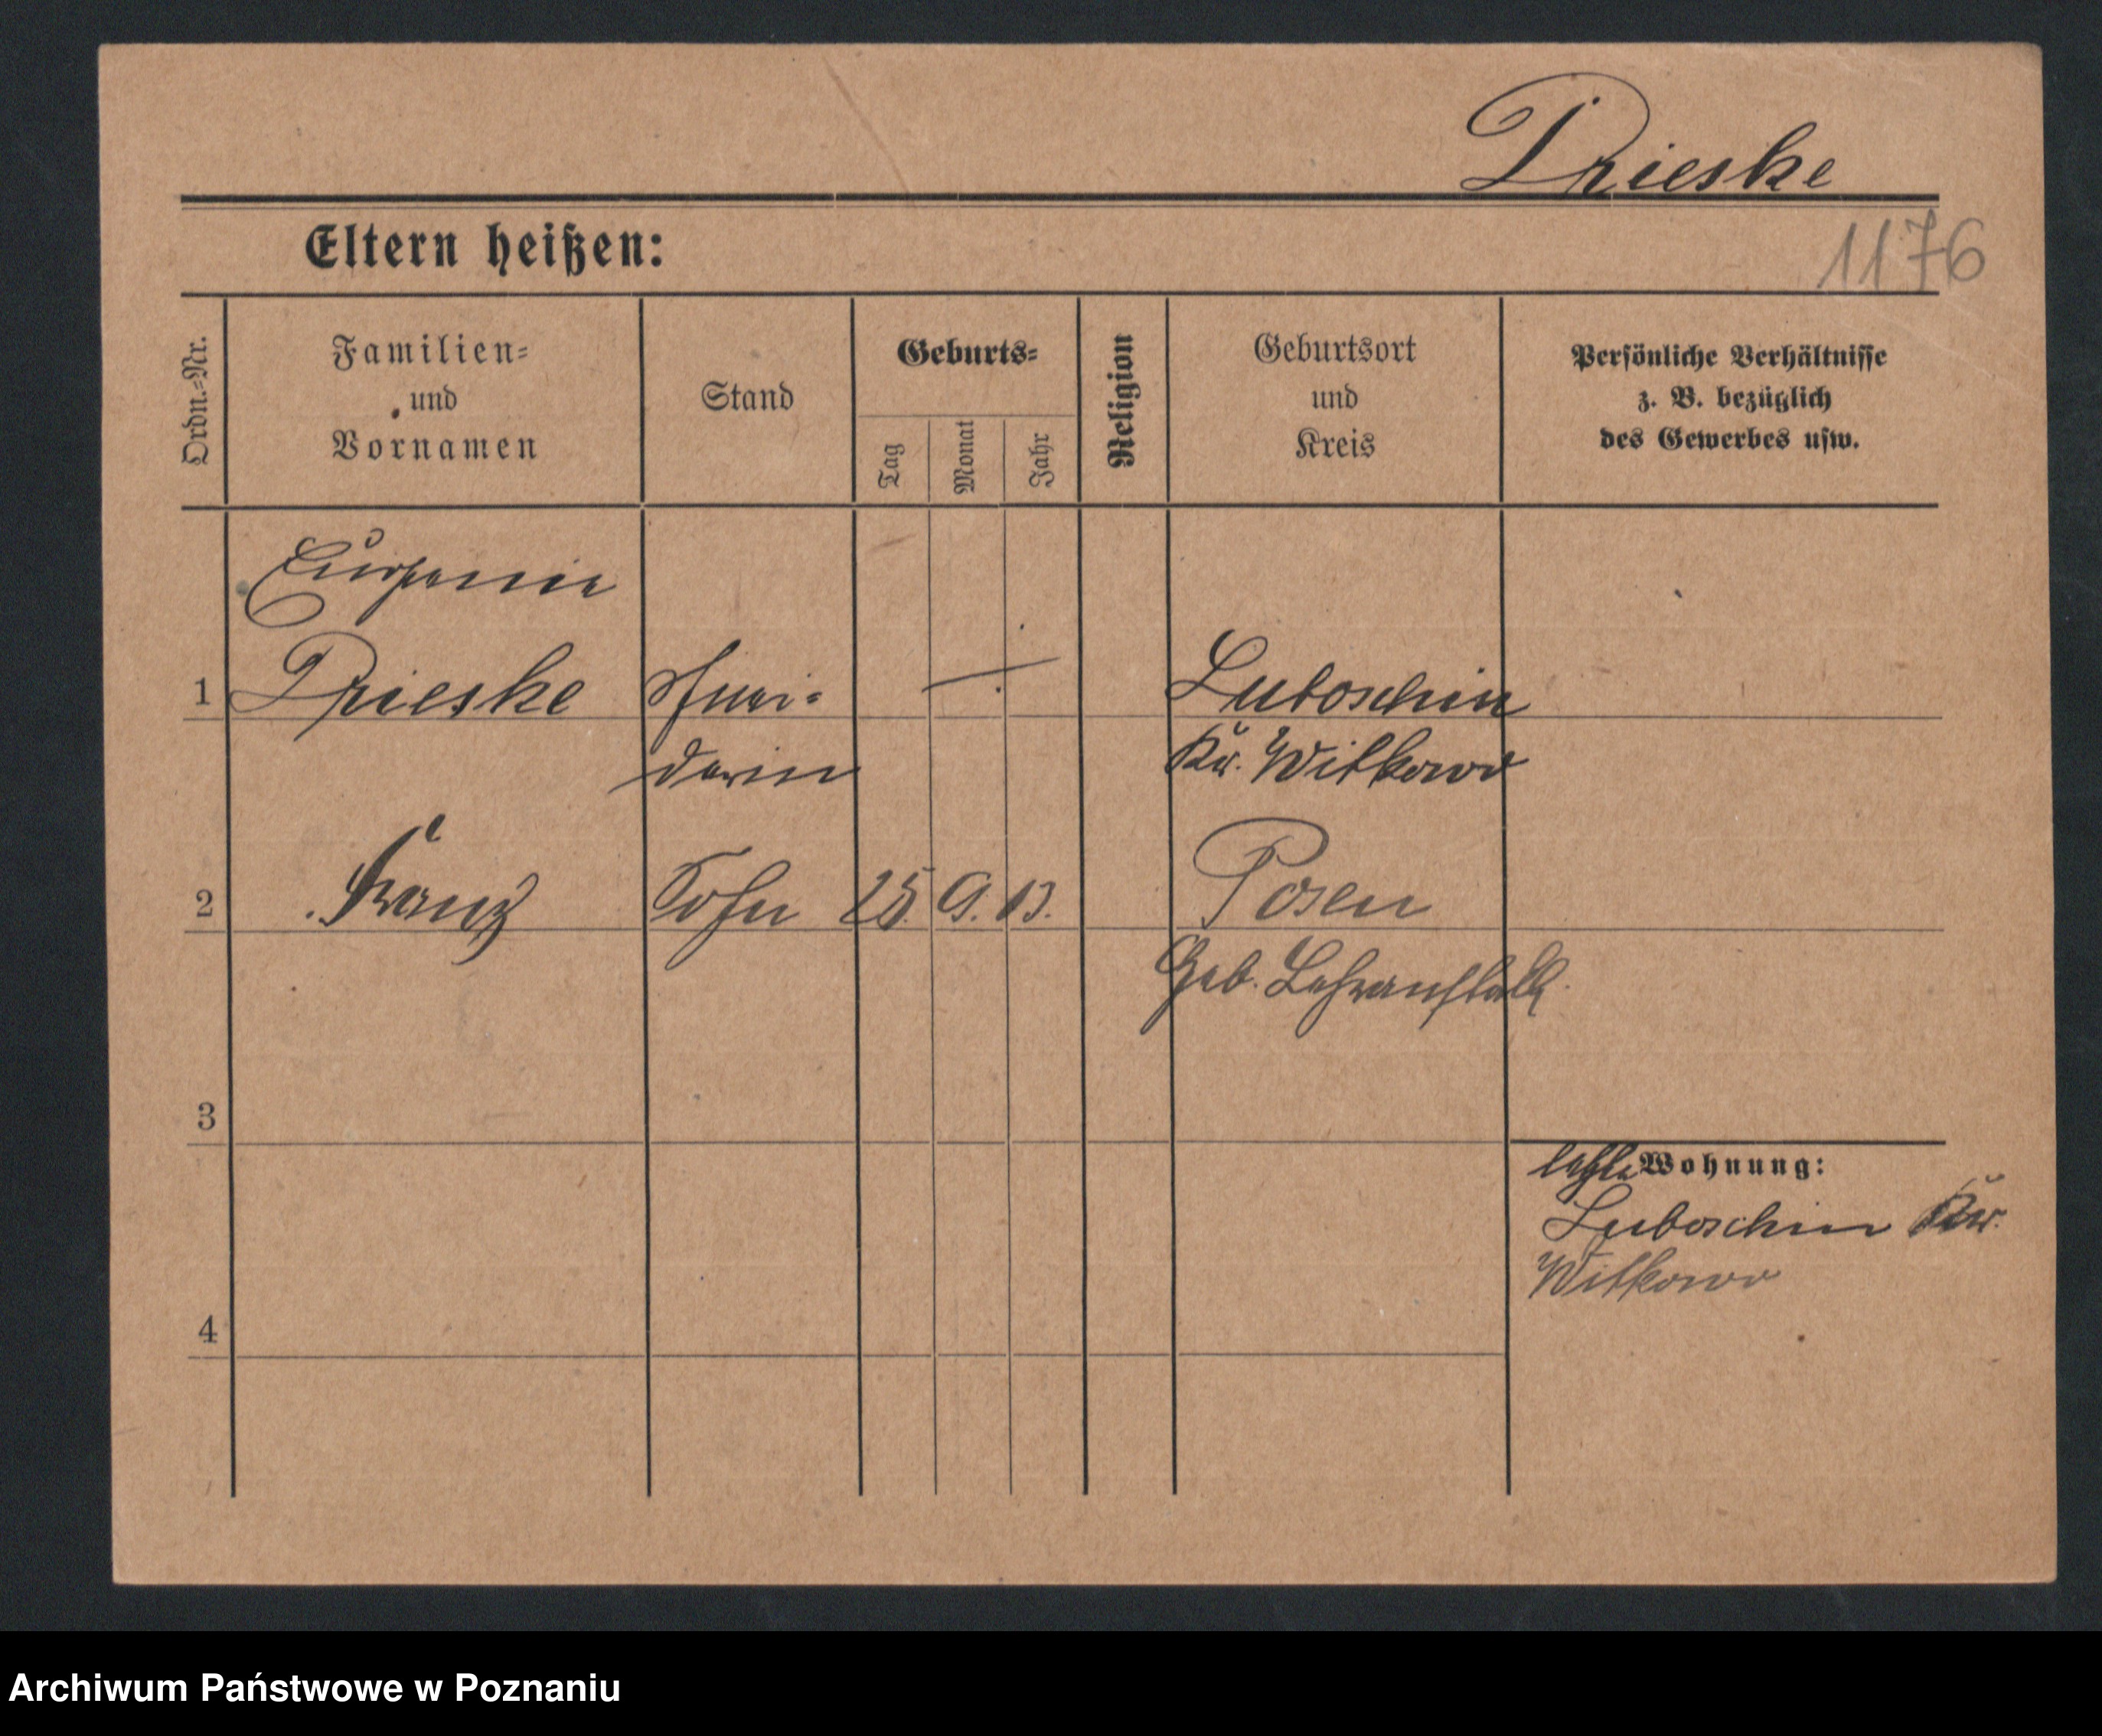 Prieske
Eltern heißen:
1176
Ordn.=Nr.
Familien=
und
Vornamen
Stand
Geburts=
Tag
Monat
Jahr
Religion
Geburtsort
und
Kreis
Persönliche Verhältnisse
z. B. bezüglich
des Gewerbes usw.
Eugenie
1 Prieske Schnei- Luboschin
derin Kr. Witkowo
2 Franz Sohn 25. 9. 13. Posen
Geb. Lehranstalt.
3
letzte Wohnung:
Luboschin Kr.
Witkowo
4
Archiwum Państwowe w Poznaniu